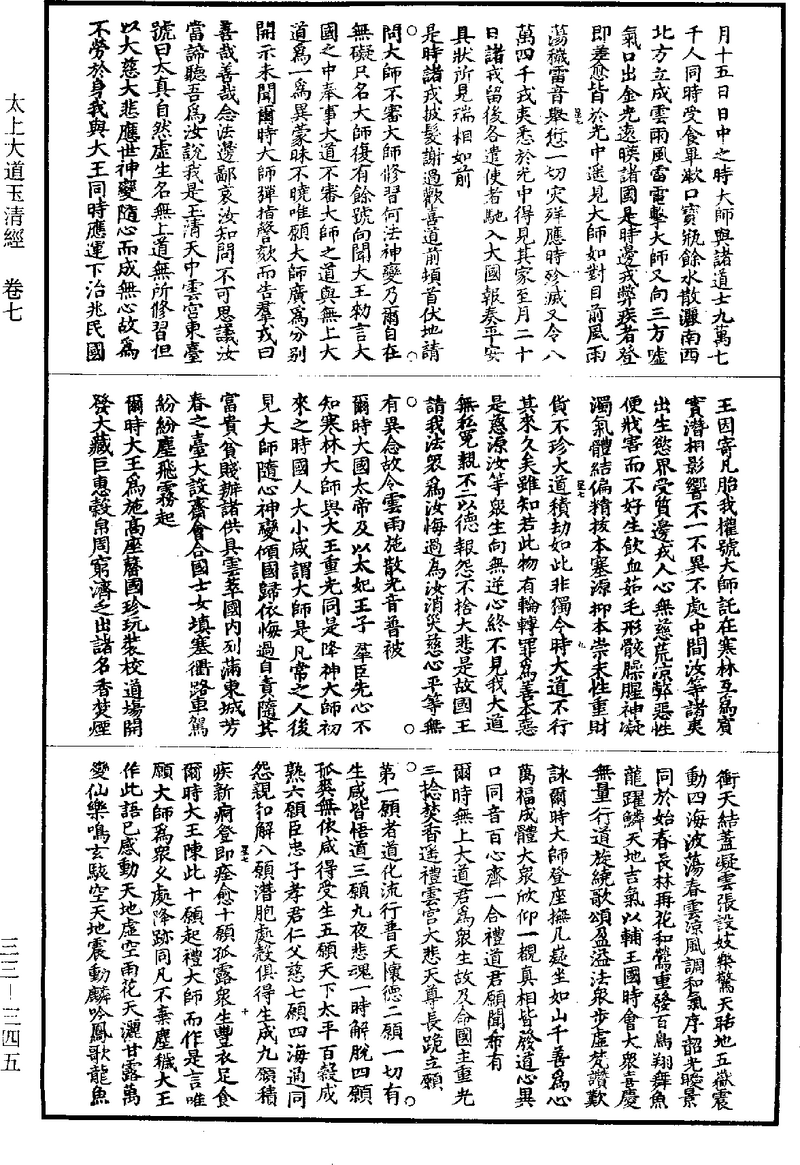 太上大道玉清經 卷七
三三—三四五
月十五日日中之時大師與諸道士九萬七
千人同時受食畢漱口寶瓶餘水散灑南西
北方立成雲雨風雷電擊大師又向三方噓
氣口出金光遠暎諸國是時邊戎弊疾者登
即差愈皆於光中遙見大師如對目前風雨
蕩穢雷音驅愆一切灾殃應時殄滅又令八
萬四千戎夷悉於光中得見其家至月二十
日諸戎留後各遣使者馳入大國報奏平安
具狀所見瑞相如前
是時諸戎披髮謝過歡喜道前頃首伏地請
問大師不審大師修習何法神變乃爾自在
無礙只名大師復有餘號向聞大王勑言大
國之中奉事大道不審大師之道與無上大
道為一為異蒙昧不曉唯願大師廣為分別
開示未聞爾時大師彈指謦欬而告羣戎曰
善哉善哉念法邊鄙哀汝知問不可思議汝
當諦聽吾為汝說我是玉清天中雲宮東臺
號曰太真自然虛生名無上道無所修習但
以大慈大悲應世神變隨心而成無心故為
不勞於身我與大王同時應運下治兆民國
王因寄凡胎我權號大師託在寒林互為賓
實潛相影響不一不異不處中間汝等諸夷
出生慾界受質邊戎人心無慈荒涼弊惡性
便戕害而不好生飲血茹毛形骸臊腥神凝
濁氣體結偏精拔本塞源抑本崇末性重財
貨不珍大道積劫如此非獨今時大道不行
其來久矣雖知若此物有輪轉罪為善本惡
是惑源汝等眾生向無逆心終不見我大道
無私冤親不二以德報怨不捨大悲是故國王
請我法眾為汝悔過為汝消災慈心平等無
有異念故令雲雨施散光音普被
爾時大國太帝及以太妃王子羣臣先心不
知寒林大師與大王重光同是降神大師初
來之時國人大小咸謂大師是凡常之人後
見大師隨心神變傾國歸依悔過自責隨其
富貴貧賤辦諸供具雲萃國內列滿東城芳
春之臺大設齋會合國士女填塞衢路車駕
紛紛塵飛霧起
爾時大王為施高座罄國珍玩裝校道場開
發大藏巨惠穀帛周窮濟乏出諸名香焚煙
衝天結蓋凝雲張設妓樂驚天聒地五嶽震
動四海波蕩春雲涼風調和氣序韶光暖景
同於始春長林再花和鶯重發百鳥翔舞魚
龍躍鱗天地吉氣以輔王國時會大眾喜慶
無量行道旋繞歌頌盈溢法眾步虛梵讚歎
詠爾時大師登座撫几凝坐如山千善為心
萬福成體大眾欣仰一覩真相皆發道心異
口同音百心齊一合禮道君願聞希有
爾時無上大道君為眾生故及命國主重光
三捻焚香遙禮雲宮大悲天尊長跪立願
第一願者道化流行普天懷德二願一切有
生咸皆悟道三願九夜悲魂一時解脫四願
孤煢無依咸得受生五願天下太平百穀成
熟六願臣忠子孝君仁父慈七願四海通同
怨親和解八願潛胞處殼俱得生成九願積
疾新痾登即痊愈十願孤露眾生豐衣足食
爾時大王陳此十願起禮大師而作是言唯
願大師為眾父處降跡同凡不棄塵穢大王
作此語已感動天地虛空雨花天灑甘露萬
變仙樂鳴玄駭空天地震動麟吟鳳歌龍魚